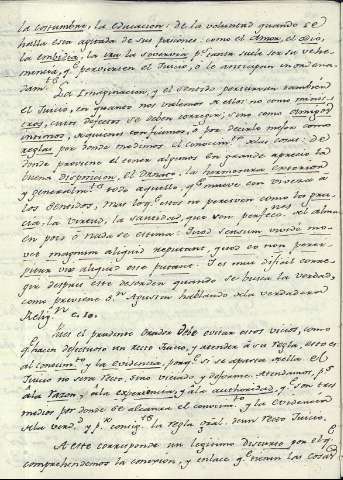 la costumbre, la educacion: de la voluntad quando se
halla esta agitada de sus pasiones: como el Amor, el odio,
la embidia, la ira la sobervia pr. tanta suele ser su vehe-
mencia, qe. pervierten el Juicio, ô le anticipan inordena-
damte.
La Imaginacion, y el sentido perturvan tambien
el Juicio, en quanto nos valemos de ellos no como minis-
tros, cuios defectos se deben corregir, sino como Amigos
intimos, a quienes confiamos, ô por decirlo mejor como
reglas por donde medimos el conocimto. de las cosas: de
donde proviene el tener algunos en grande aprecio la
buena disposicion, el la hermosura exterior
y generalmte. todo aquello, qe. mueve con viveza â
los sentidos, mas lo qe. estos no perciven como la gra-
cia, la virtud, la santidad, que son perfecnes. del alma
en poco ô nada se estima: Quod sensum vivide mo-
vet magnum aliquid reputant, quod eo non perci-
pitur vix aliquid esse putant. Y es mui dificil corre-
gir despues este desorden quando se busca la verdad,
como previene Sn. Agustin hablando de la verdadera
Relign. c. 10.
Pues el prudente Orador debe evitar estos vicios, como
qe. hacen defectuoso un recto Juicio, y atender â su regla, esto es
al conocimto. y la evidencia, porqe. si se aparta de ella el
Juicio no sera recto, sino viciado y deforme. Atendamos, ps.
â la razon, â la experiencia, y â la authoridad, qe. son tres
medios por donde se alcanza el conocimto. y la evidencia
de la verdd. y pr. consigte. la regla gral. de un recto Juicio.
A este corresponde un legitimo discurso por el qe.
comprehendemos la conexion, y enlace qe. tienen las cosas